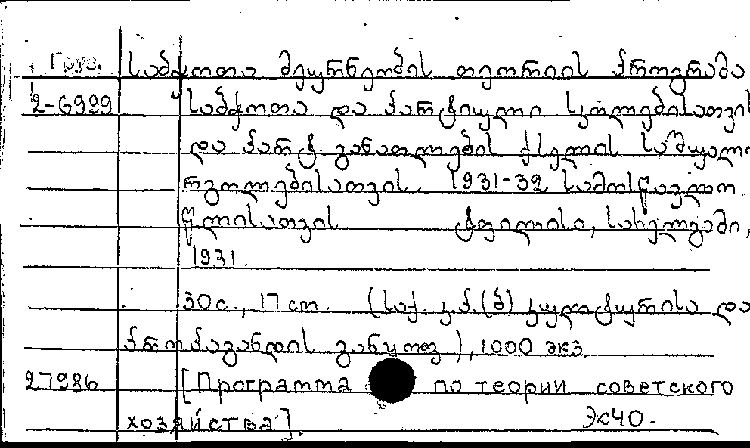 Груз. საბჭოთა მეურნეობის თეორიის პროგრამა
2-6929 საბჭოთა და პარტიული სკოლებისათვის
და პარტ. განათლების ქსელის საშუალო
რგოლებისათვის. 1931-32 სამოსწავლო
წლისათვის ტფილისი, სახელგამი,
1931
30 с., 17 см. (საქ. კ.პ.(ბ) კულტურისა და
პროპაგანდის განყოფ), 1000 экз
27986 [Программа по теории советского
хозяйства]. Эк40.